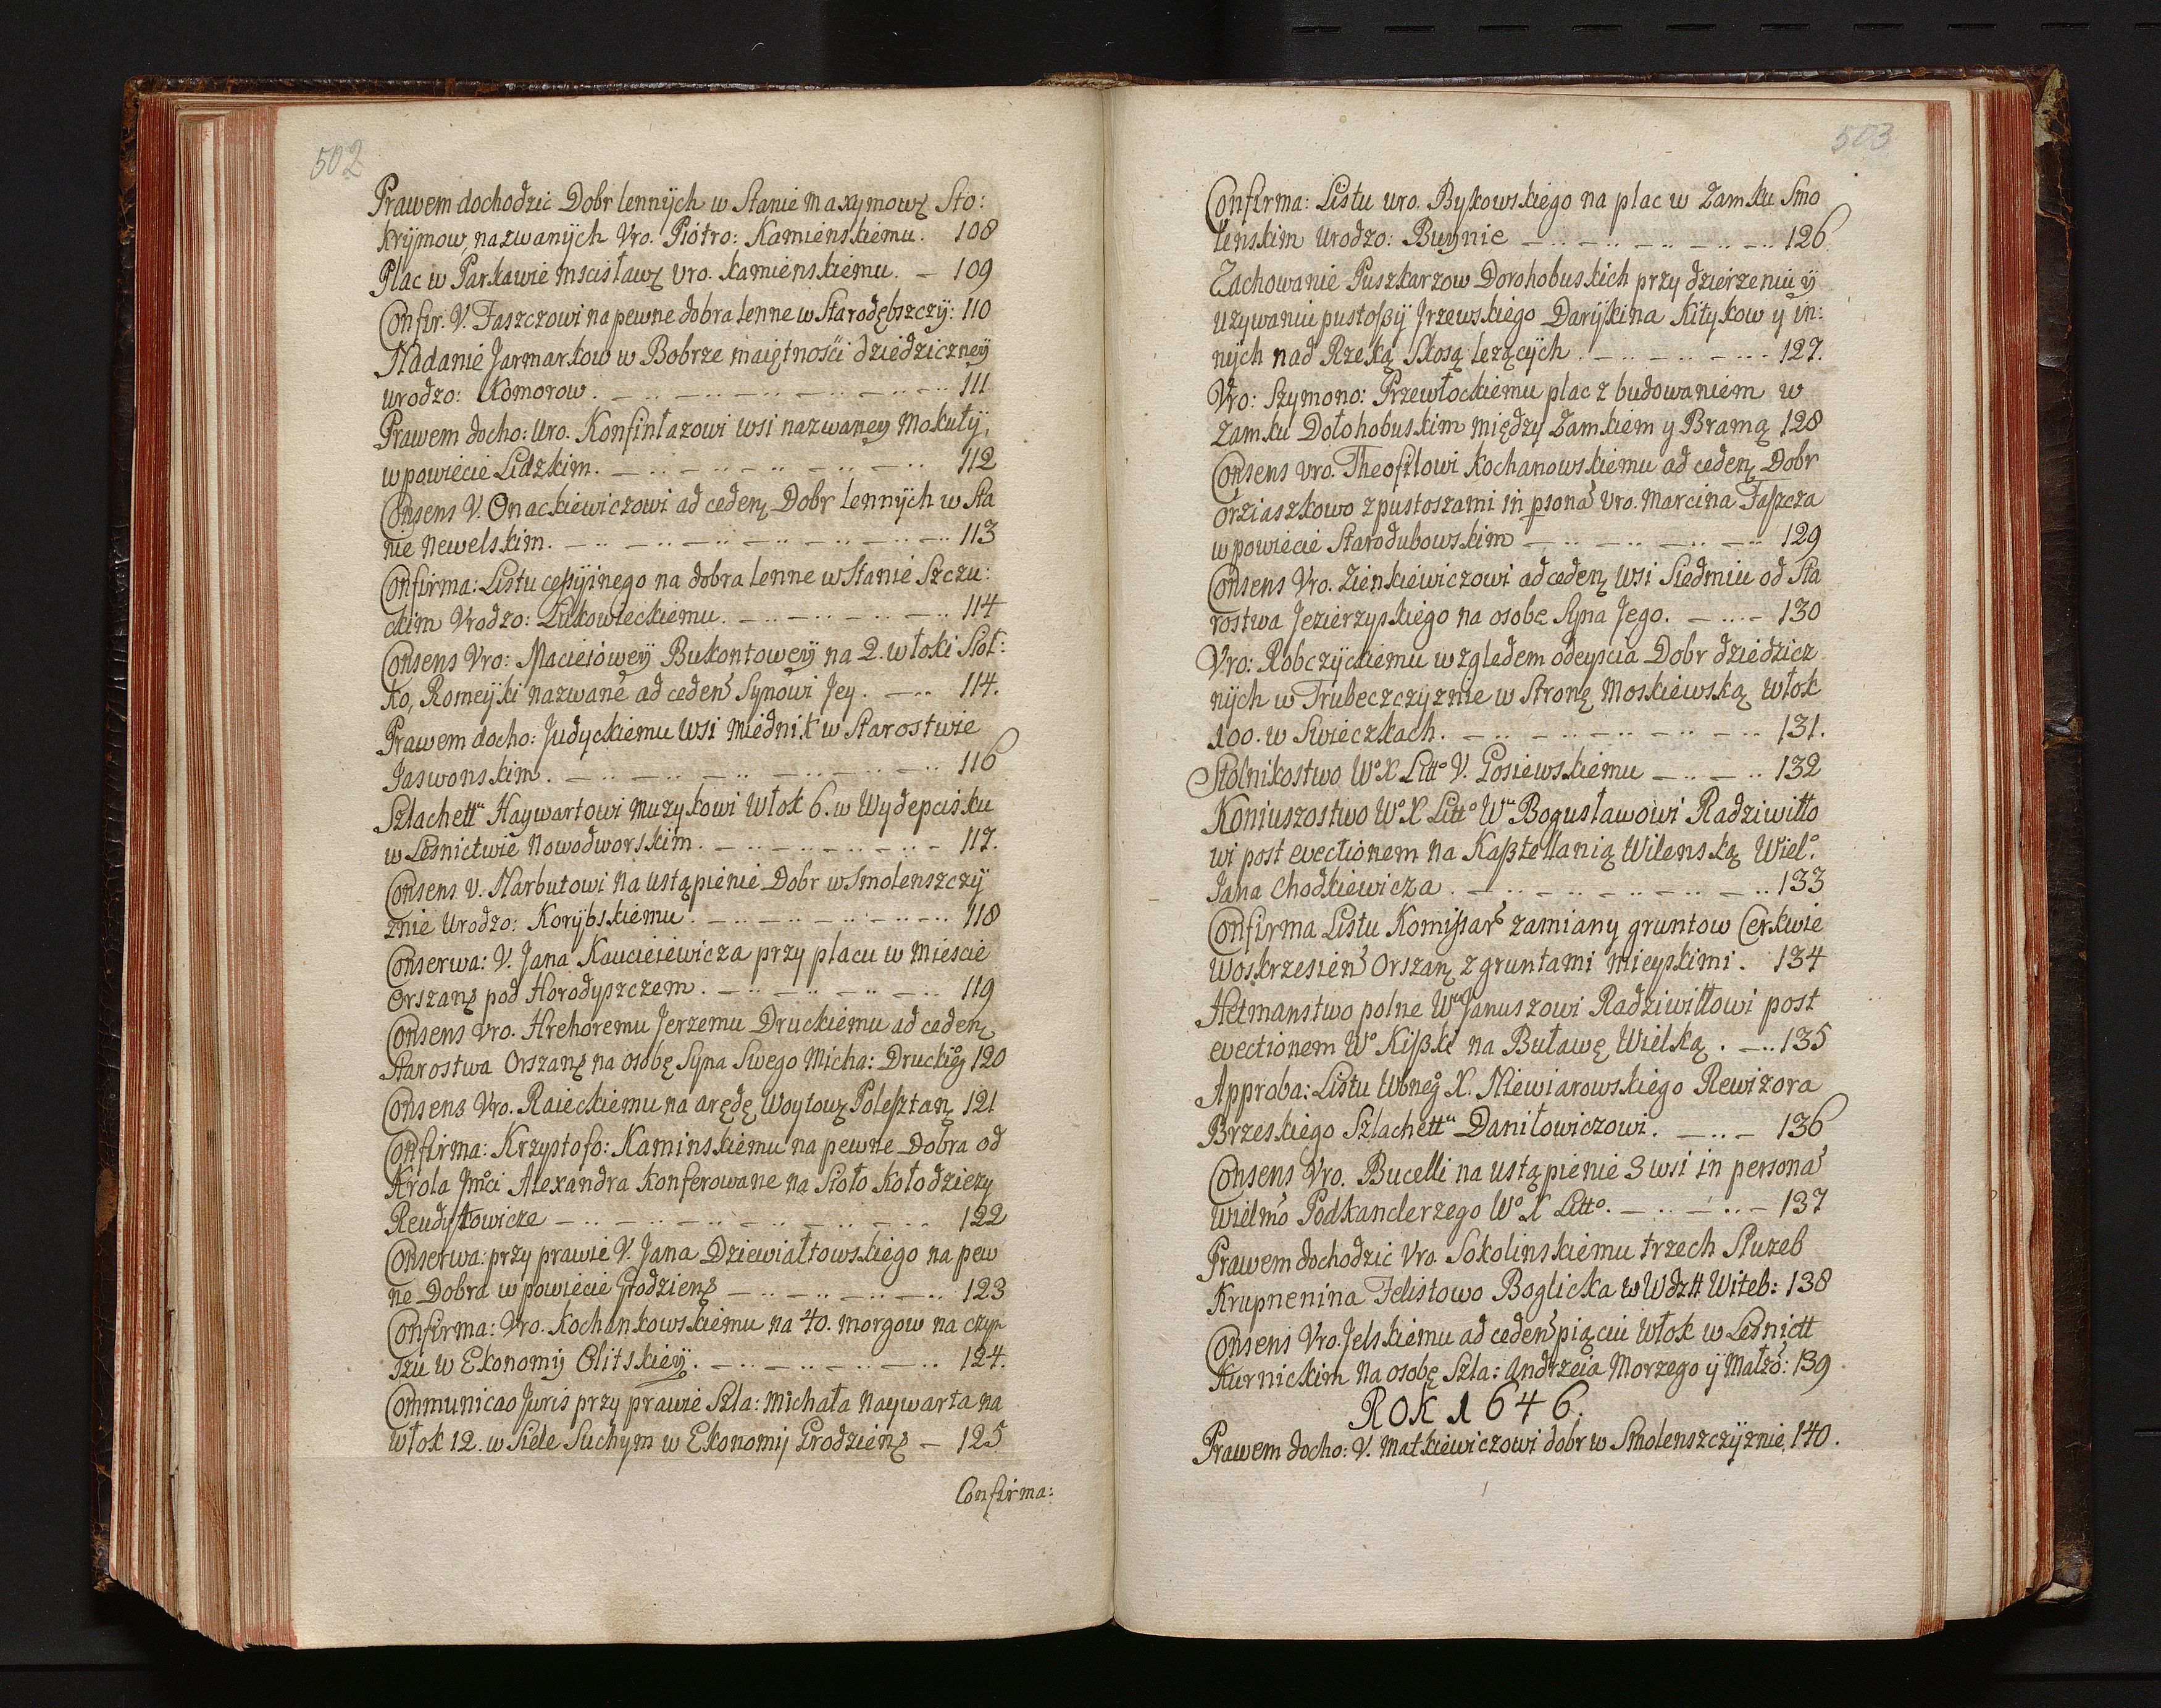 502
Prawem dochodzic Dobr lennÿch w Stanie Maxymowę Sto:
krÿmow, nazwanÿch Vro. Piotro: Kamienskiemu. 108
Plac w Parkawie Mscisławę Vro. Kamienskiemu. — 109
Confir. V. Faszczowi na pewne dobra lenne w Starodębszczÿ: 110
Nadanie Jarmarkow w Bobrze maiętnosci dziedziczneÿ
urodzo: Komorow. 111
Prawem docho: Uro. Konfintazowi wsi nazwaneÿ Mokutÿ,
w powiecie Lidzkim. 112
Consens V. Onackiewiczowi ad cedenę Dobr lennÿch w Sta
nie Newelskim. 113
Confirma: Listu ceßÿinego na dobra lenne w Stanie Szczu:
ckim Vrodzo: Łukowieckiemu. 114
Consens Vro: Macieioweÿ Bukontoweÿ na 2. włoki Słot:
ko, Romeÿki nazwane ad ceden Synowi Jey. 114.
Prawem docho: Judyckiemu Wsi Miednik w Starostwie
Jaswonskim. 116
Szlachettu Haywartowi Muzykowi Włok 6. w Wydepcisku
w Lesnictwie Nowodworskim. 117.
Consens V. Narbutowi na ustąpienie Dobr w Smolenszczÿ
znie Urodzo: Korÿbskiemu. 118
Conserwa: V. Jana Kauciеiewicza przy placu w Miescie
Orszanę pod Horodyszczem. 119
Consens Vro. Hrehoremu Jerzemu Druckiemu ad cedenę
Starostwa Orszanę na osobę Syna Swego Micha: Druckieg 120
Consens Vro. Raieckiemu na arędę Woytowę Polesztanę 121
Confirma: Krzysztofo: Kaminskiemu na pewne Dobra od
Krola Jmci Alexandra konferowane na Sioło Kołodziezy
Reudykowicze 122
Conserwa: przy prawie V. Jana Dziewiałtowskiego na pew
ne Dobra w powiecie Grodzienę 123
Confirma: Vro. Kochankowskiemu na 40. morgow na czyn
szu w Ekonomÿ Olitskieÿ. 124.
Communicao Juris przy prawie Szla: Michała Naywarta na
włok 12. w Siele Suchym w Ekonomij Grodzienę — 125
Confirma:
503
Confirma: Listu uro. Bykowskiego na plac w Zamku Smo
lenskim Urodzo: Buynie 126
Zachowanie Puszkarzow Dorohobuskich przy dzierzeniu ÿ
uzywaniu pustoßÿ Jrzewskiego Darÿkina Kitykow y in:
nÿch nad Rzeką Skosą lezącÿch. 127.
Vro: Szymono: Przewłockiemu plac z budowaniem w
Zamku Dołohobuskim między Zamkiem y Bramą 128
Consens Vro. Theofilowi Kochanowskiemu ad cedenę Dobr
Orziaszkowo z pustoszami in psona Vro. Marcina Faßcza
w powiecie Starodubowskim 129
Consens Vro. Zienkiewiczowi ad cedenę Wsi Siedmiu od Sta
rostwa Jezierzyskiego na osobe Syna Jego. 130
Vro: Robczÿckiemu względem odeyscia Dobr dziedzicz
nÿch w Trubeczczÿznie w Stronę Moskiewską Włok
100. w Swieczkach. 131.
Stolnikostwo Wo X Litto V. Gosiewskiemu 132
Koniuszostwo Wo X Litto Wu Bogusławowi Radziwiłło
wi post evectionem na Kaßtellanią Wilenską Wielo
Jana Chodkiewicza. 133
Confirma Listu Komißars zamiany gruntow Cerkwie
Woskrzesien Orszanę z gruntami mieyskimi. 134
Hetmanstwo polne Wu Januszowi Radziwiłłowi post
evectionem Wo Kißki na Buławę Wielką. 135
Approba: Listu Wbneg X. Niewiarowskiego Rewizora
Brzeskiego Szlachettu Daniłowiczowi. 136
Consens Vro. Bucelli na ustąpienie 3 wsi in persona
Wielmo Podkanclerzego Wo X Litto. 137
Prawem dochodzic Vro. Sokolinskiemu trzech Słuzeb
Krupnenina Felistowo Boglicka w Wdztt Witeb: 138
Consens Vro. Jelskiemu ad ceden piąciu Włok w Lesnictt
Kurnickim na osobę Szla: Andrzeia Morzego ÿ Małzo: 139
ROK 1646.
Prawem docho: V. Matkiewiczowi dobr w Smolenszczÿznie 140.